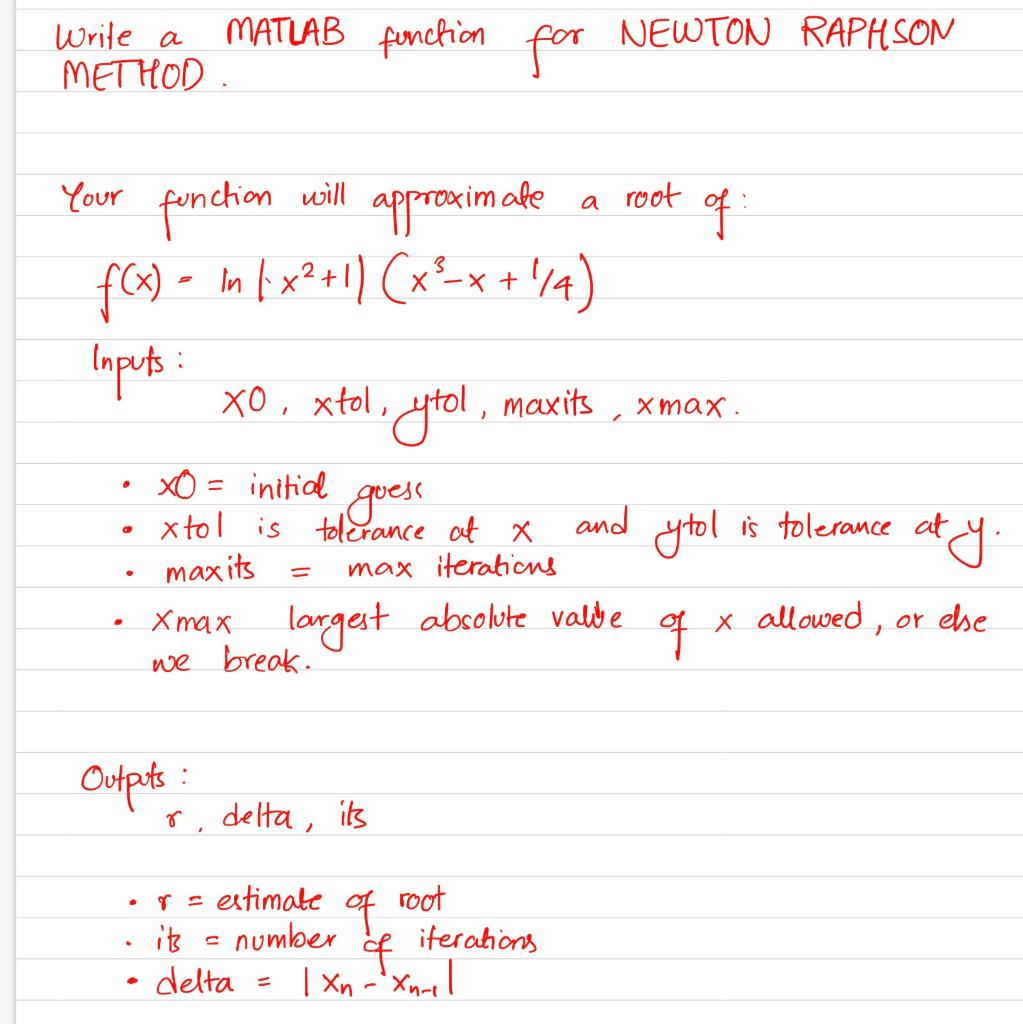 Write a MATLAB function for NEWTON RAPHSON
METHOD.
Your function will approximate a root of:
f(x) = ln(x²+1) (x³-x + 1/4)
Inputs:
x0, xtol, ytol, maxits, xmax.
• x0 = initial guess
• xtol is tolerance at x and ytol is tolerance at y.
• maxits = max iterations
• xmax largest absolute value of x allowed, or else
we break.
Outputs:
r, delta, its
• r = estimate of root
• its = number of iterations
• delta = |xₙ - xₙ₋₁|